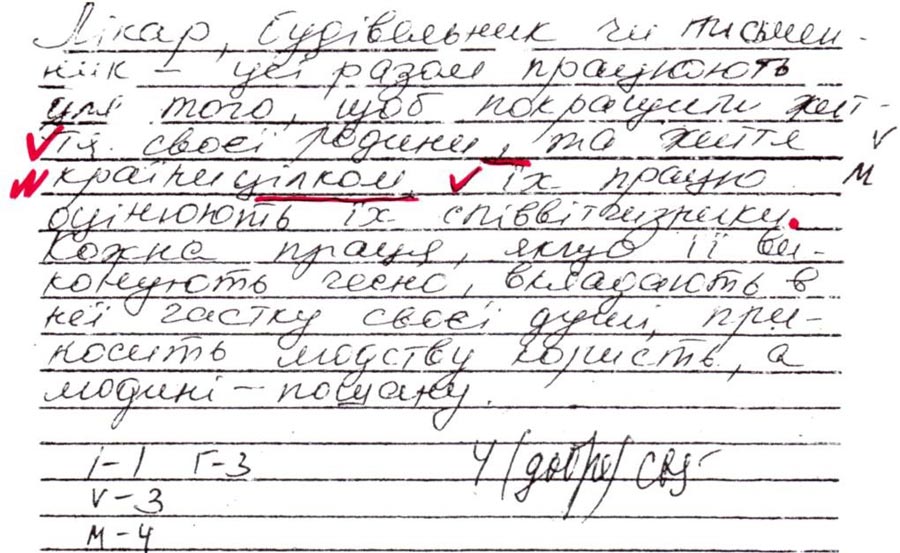 Лікар, будівельник чи письмен-
ник – усі разом працюють
для того, щоб покращити жит-
тя своєї родини, та життя V
країни цілком. V їх працю М
оцінюють їх співвітчизники.
Кожна праця, якщо її ви-
конують чесно, вкладають в
неї частку своєї душі, при-
носить людству користь, а
людині – пошану.
I–1 Г–3 4 (добре)
V–3
М–4